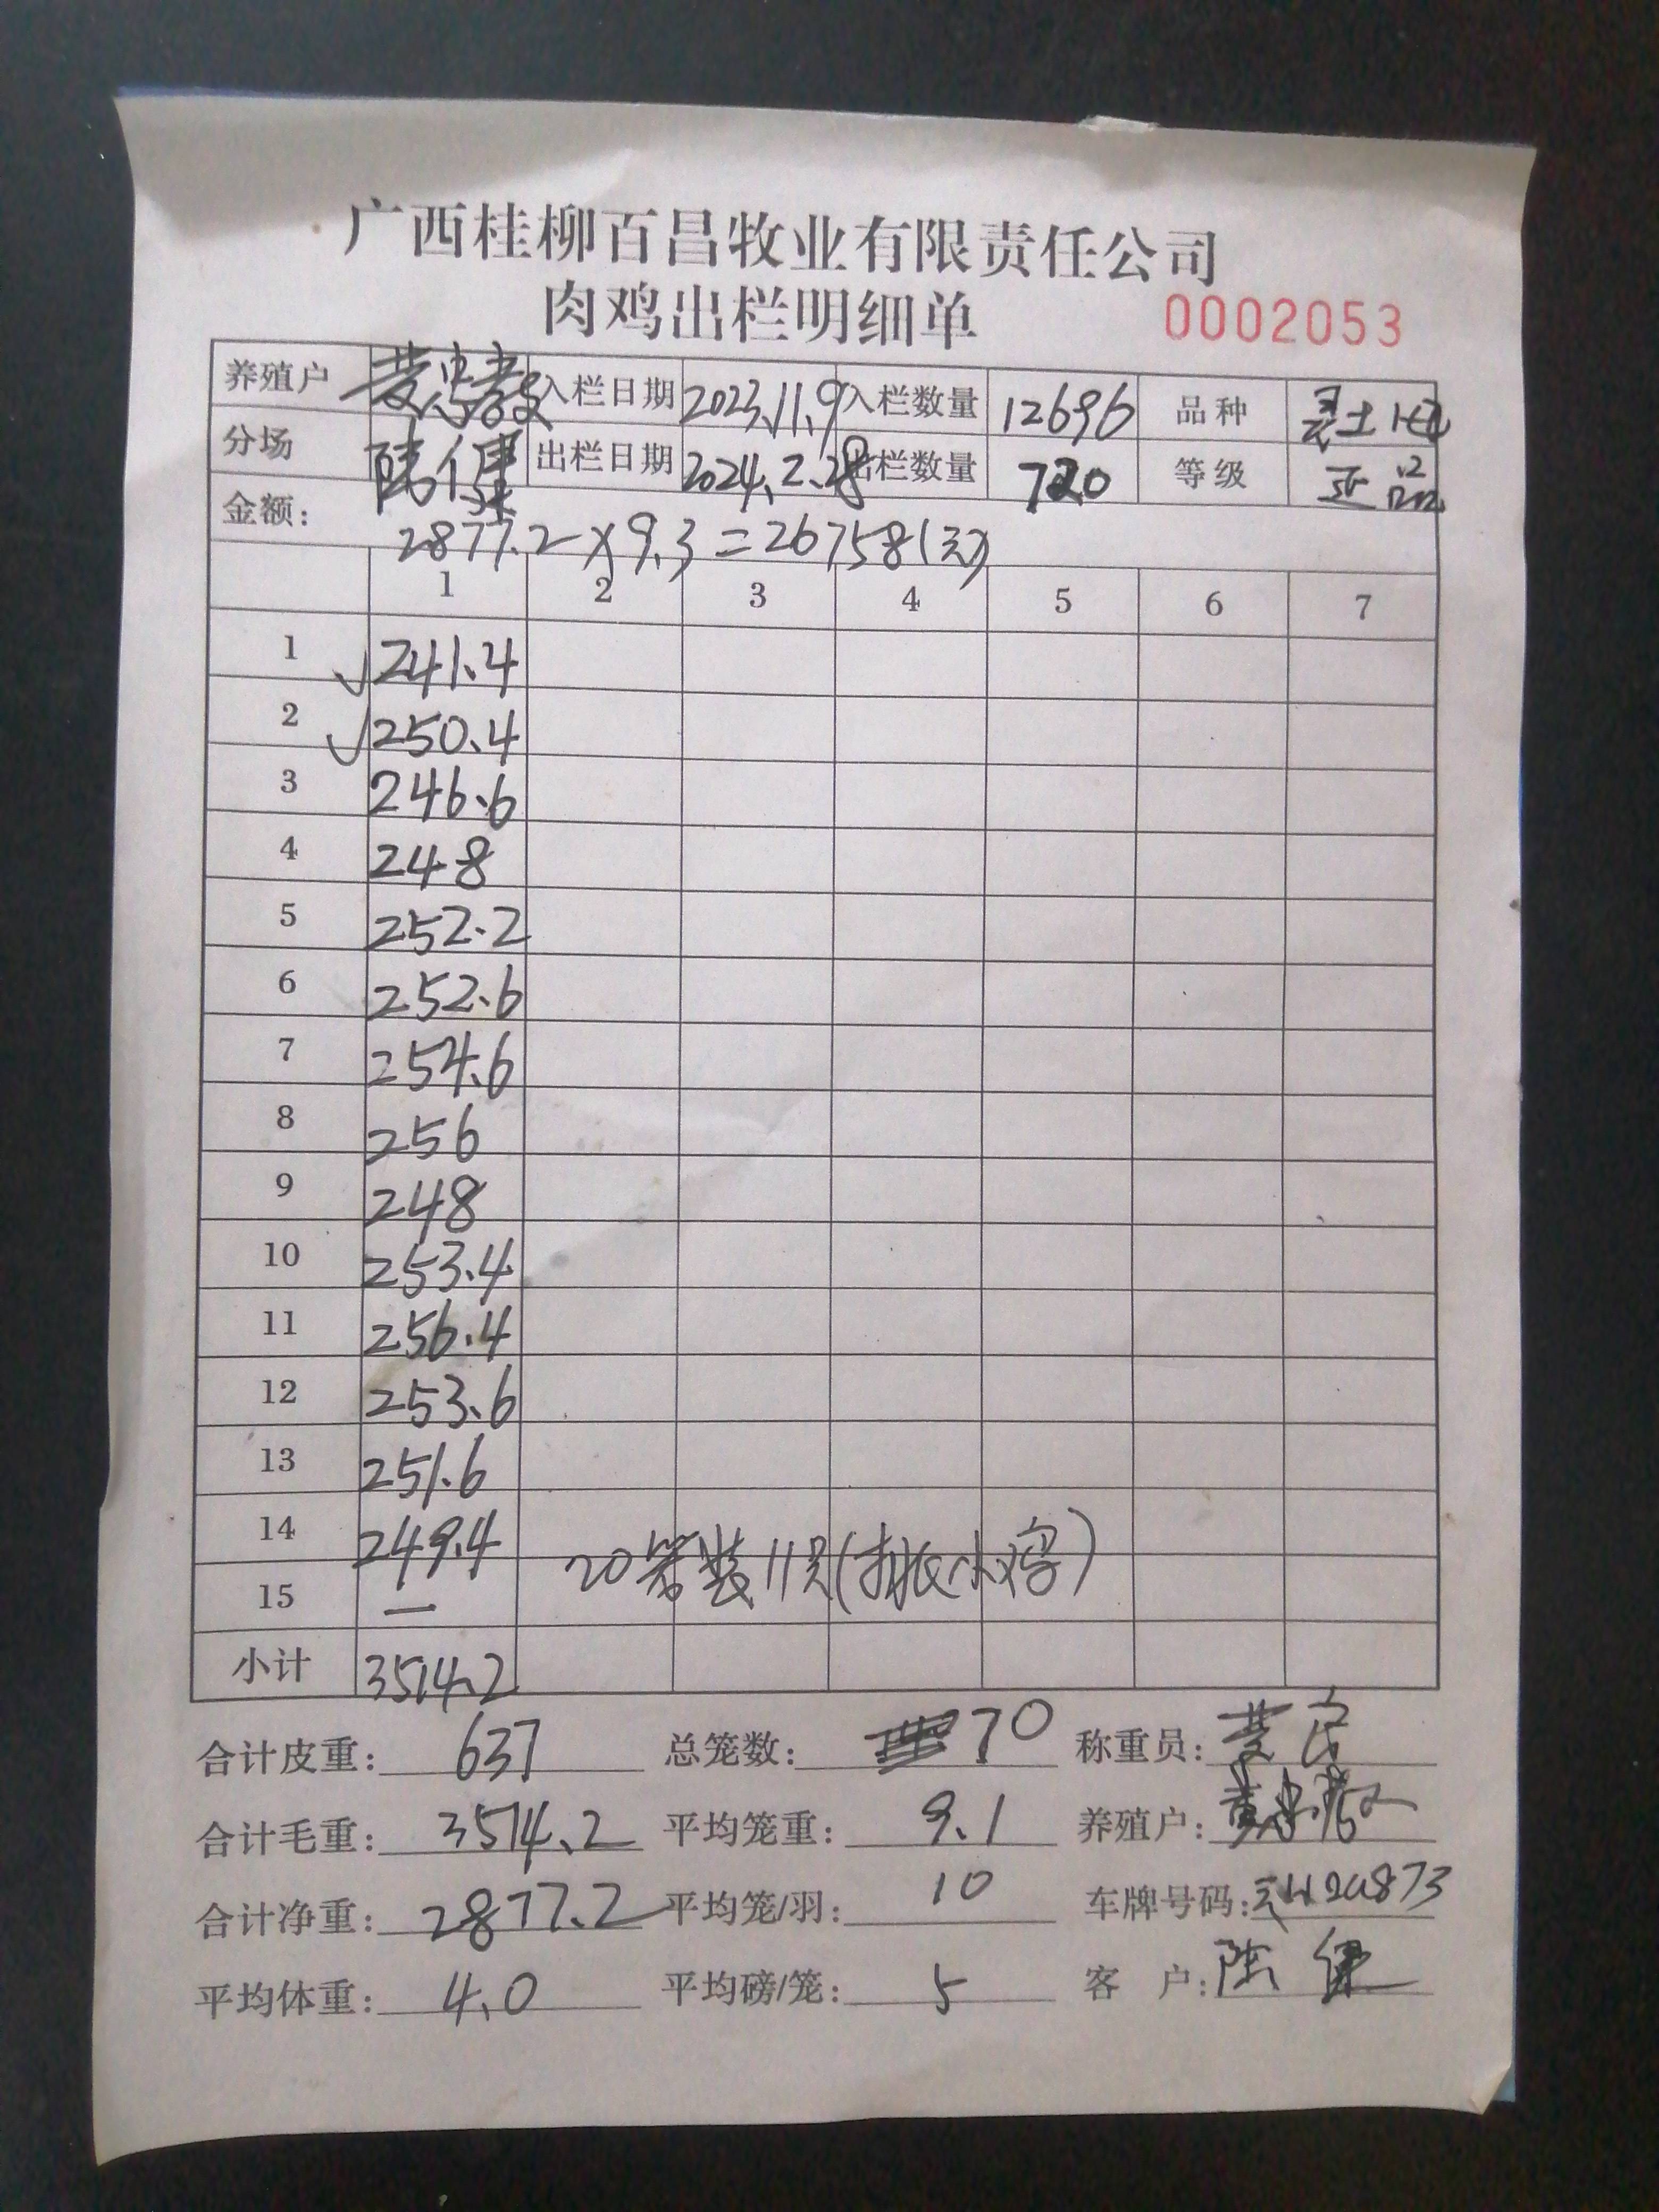 广西桂柳百昌牧业有限责任公司
肉鸡出栏明细单 0002053
养殖户 黄忠教 入栏日期 2023.11.9 入栏数量 12696 品种 灵土
分场 陆健 出栏日期 2024.2.28 出栏数量 720 等级 正品
金额: 2877.2×9.3=26758(元)
1 2 3 4 5 6 7
1 √241.4
2 √250.4
3 246.6
4 248
5 252.2
6 252.6
7 254.6
8 256
9 248
10 253.4
11 256.4
12 253.6
13 251.6
14 249.4
20笼装11只(小鸡)
15 一
小计 3514.2
合计皮重: 637 总笼数: 70 称重员:
合计毛重: 3514.2 平均笼重: 9.1 养殖户: 黄忠教
合计净重: 2877.2 平均笼/羽: 10 车牌号码:
平均体重: 4.0 平均磅/笼: 5 客 户: 陆健